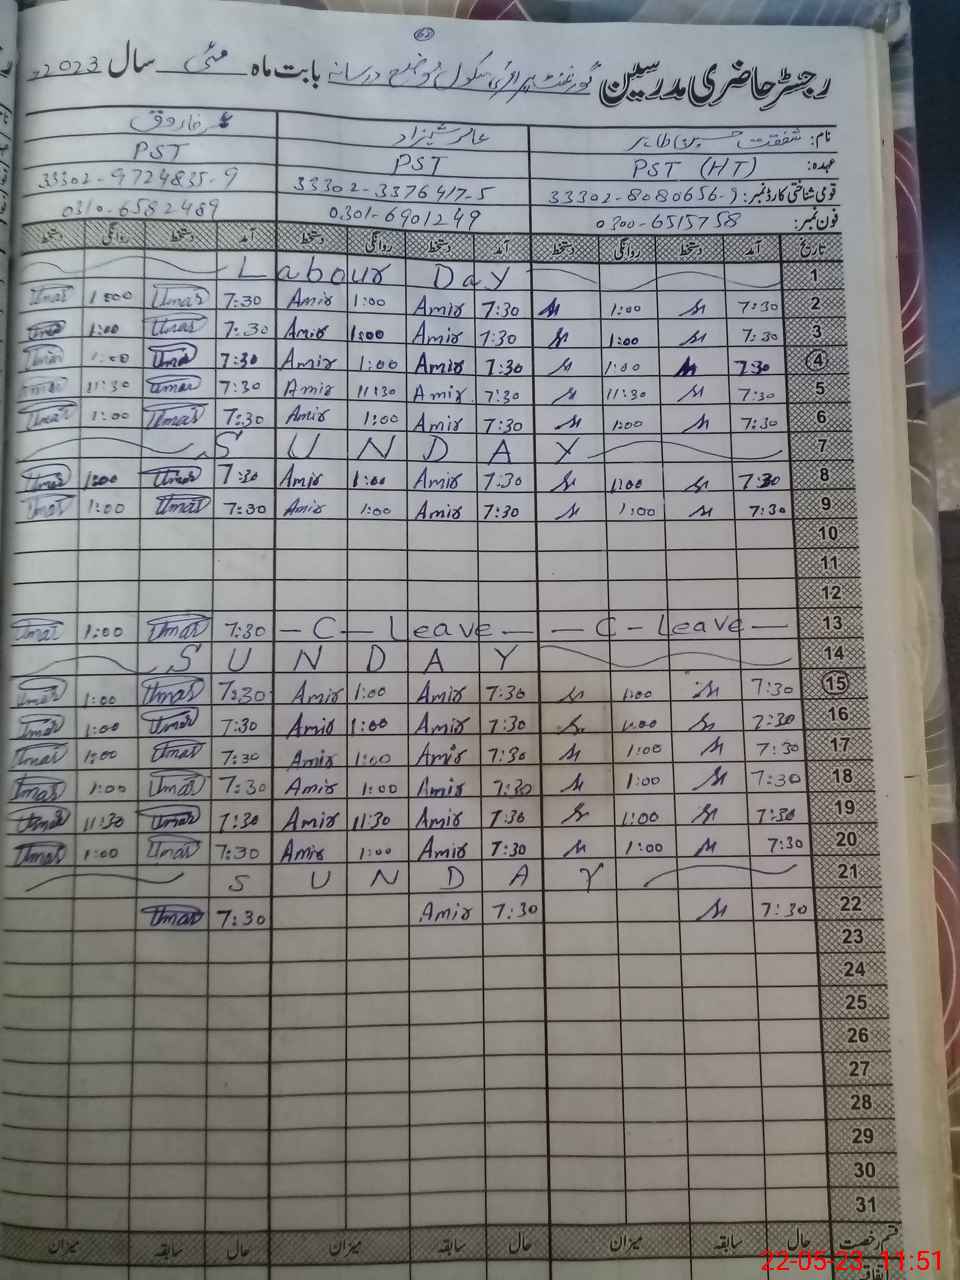 62
رجسٹر حاضری مدرسین گورنمنٹ پرائمری سکول موضع درسانہ بابت ماہ مئی سال 2023ء
نام: شفقت حسین طاہر عامر شہزاد عمر فاروق
عہدہ: PST (HT) PST PST
قومی شناختی کارڈ نمبر: 33302-8080656-9 33302-3376417-5 33302-9724835-9
فون نمبر: 0300-6515758 0301-6901249 0310-6582489
تاریخ آمد دستخط روانگی دستخط آمد دستخط روانگی دستخط آمد دستخط روانگی دستخط
1 Labour Day
2 7:30 1:00 7:30 Amir 1:00 Amir 7:30 Umar 1:00 Umar
3 7:30 1:00 7:30 Amir 1:00 Amir 7:30 Umar 1:00 Umar
4 7:30 1:00 7:30 Amir 1:00 Amir 7:30 Umar 1:00 Umar
5 7:30 11:30 7:30 Amir 11:30 Amir 7:30 Umar 11:30 Umar
6 7:30 1:00 7:30 Amir 1:00 Amir 7:30 Umar 1:00 Umar
7 SUNDAY
8 7:30 1:00 7:30 Amir 1:00 Amir 7:30 Umar 1:00 Umar
9 7:30 1:00 7:30 Amir 1:00 Amir 7:30 Umar 1:00 Umar
10
11
12
13 - C - Leave - - C - Leave - 7:30 Umar 1:00 Umar
14 SUNDAY
15 7:30 1:00 7:30 Amir 1:00 Amir 7:30 Umar 1:00 Umar
16 7:30 1:00 7:30 Amir 1:00 Amir 7:30 Umar 1:00 Umar
17 7:30 1:00 7:30 Amir 1:00 Amir 7:30 Umar 1:00 Umar
18 7:30 1:00 7:30 Amir 1:00 Amir 7:30 Umar 1:00 Umar
19 7:30 1:00 7:30 Amir 11:30 Amir 7:30 Umar 11:30 Umar
20 7:30 1:00 7:30 Amir 1:00 Amir 7:30 Umar 1:00 Umar
21 SUNDAY
22 7:30 7:30 Amir 7:30 Umar
23
24
25
26
27
28
29
30
31
قسم رخصت حال سابقہ میزان حال سابقہ میزان حال سابقہ میزان
22-05-23 11:51